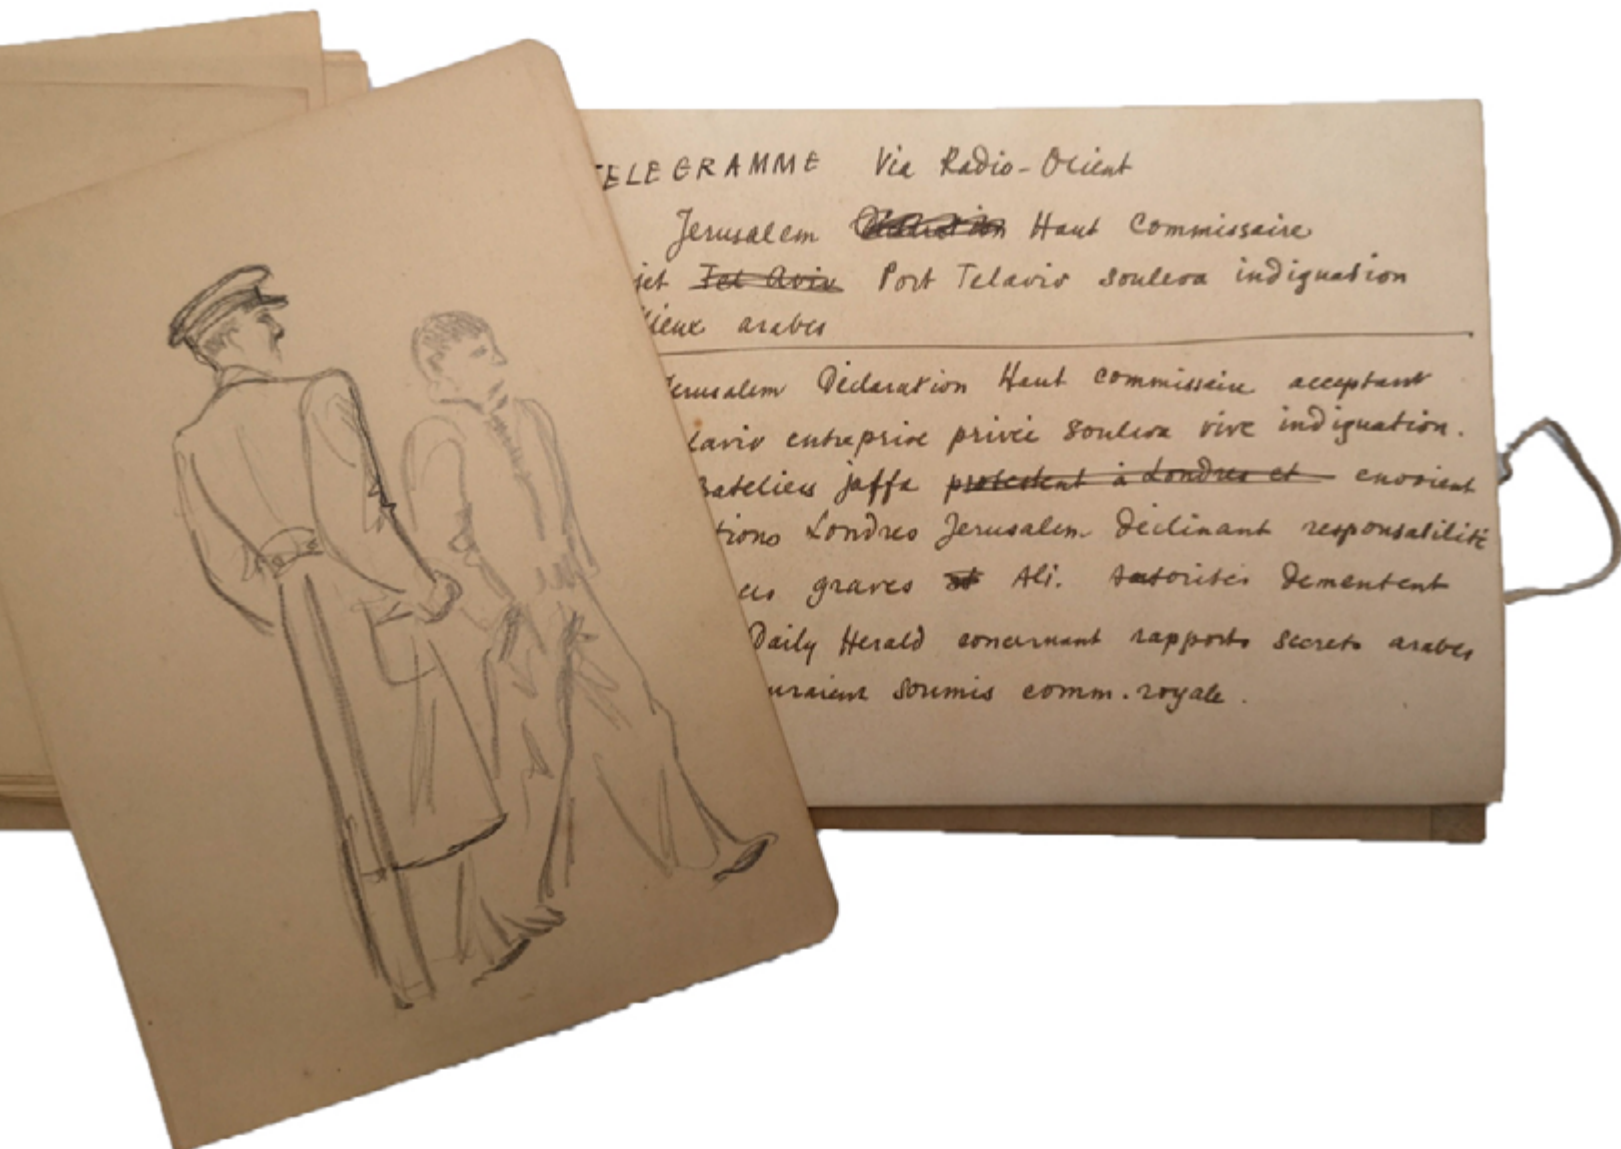 TELEGRAMME Via Radio-Orient
Jerusalem Haut Commissaire
jet Tel Aviv Port Telaviv souleva indignation
lieux arabes
Jerusalem Déclaration Haut commissaire acceptant
laviv entreprise privée souleva vive indignation.
Bateliers jaffa protestent à Londres et envoient
tions Londres Jerusalem déclinant responsabilité
ces graves et Ali. Autorités dementent
Daily Herald concernant rapports secrets arabes
uraient soumis comm. royale.